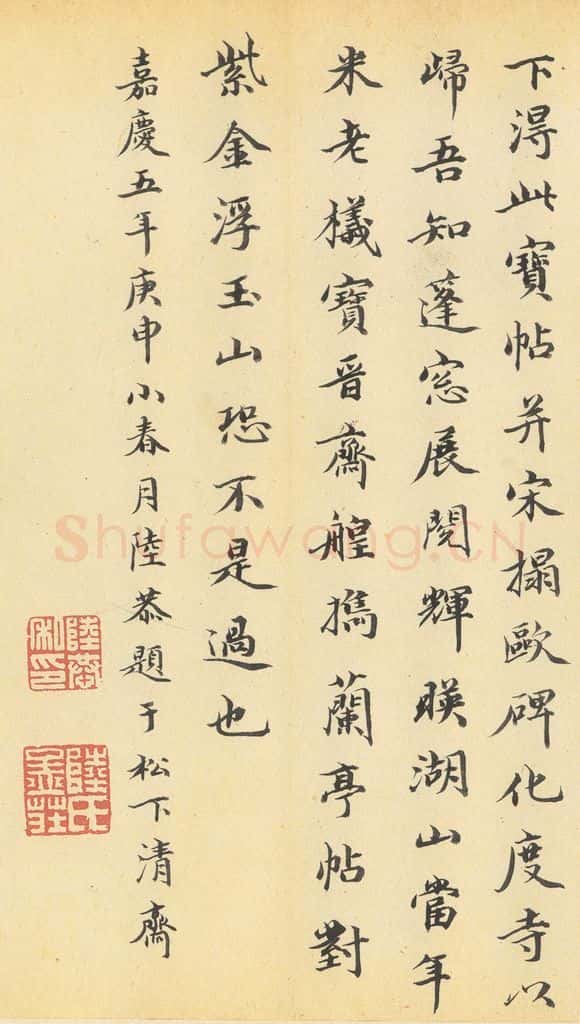 下淂此寶帖并宋搨歐碑化度寺以
歸吾知蓬窓展閱輝暎湖山當年
米老檥寶晉齋艎攜蘭亭帖對
紫金浮玉山恐不是過也
嘉慶五年庚申小春月陸恭題于松下清齋
陸恭私印
陸氏
Shufawang.CN